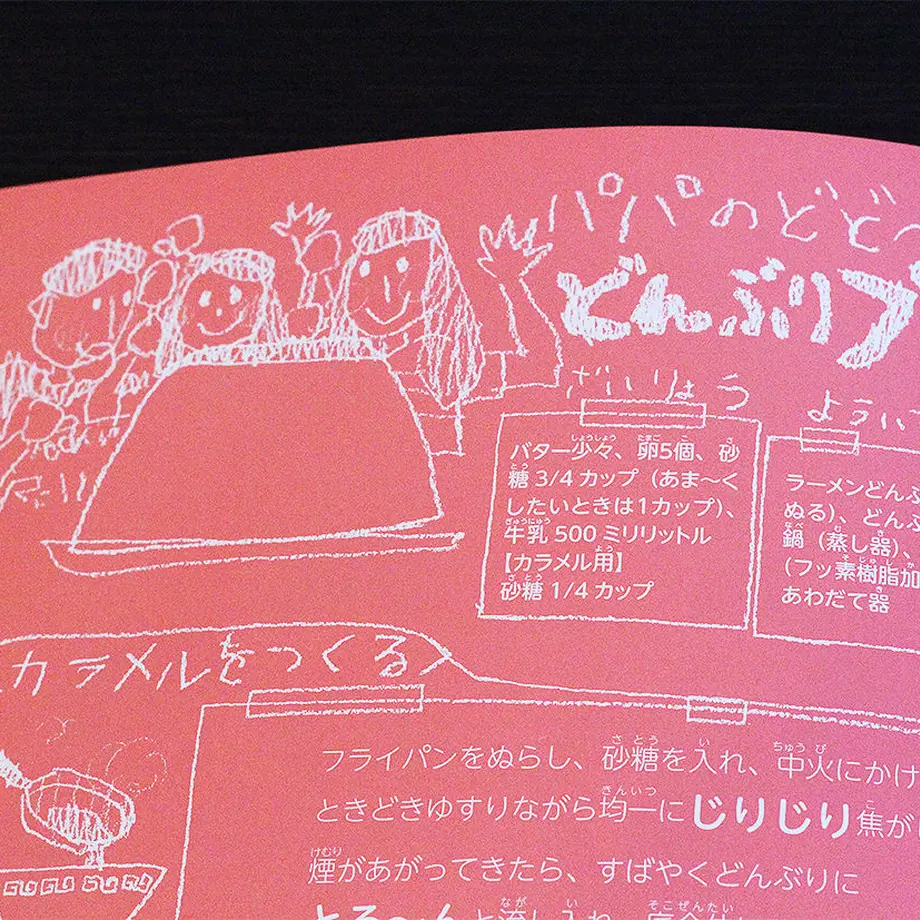 パパのどど〜
どんぶりプ
ざいりょう
ようい
バター少々、卵5個、砂
糖 3/4 カップ（あま〜く
したいときは1カップ）、
牛乳 500 ミリリットル
【カラメル用】
砂糖 1/4 カップ
ラーメンどんぶ
ぬる）、どんぶ
鍋（蒸し器）、
(フッ素樹脂加
あわだて器
カラメルをつくる
フライパンをぬらし、砂糖を入れ、中火にかけ
ときどきゆすりながら均一にじりじり焦が
煙があがってきたら、すばやくどんぶりに
とろ〜んと流し入れ、底全体